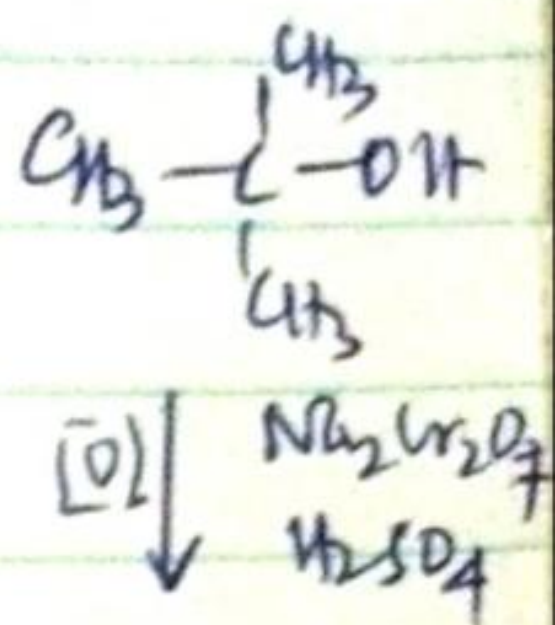 CH3
CH3 – C – OH
CH3
[O] Na2Cr2O7
H2SO4